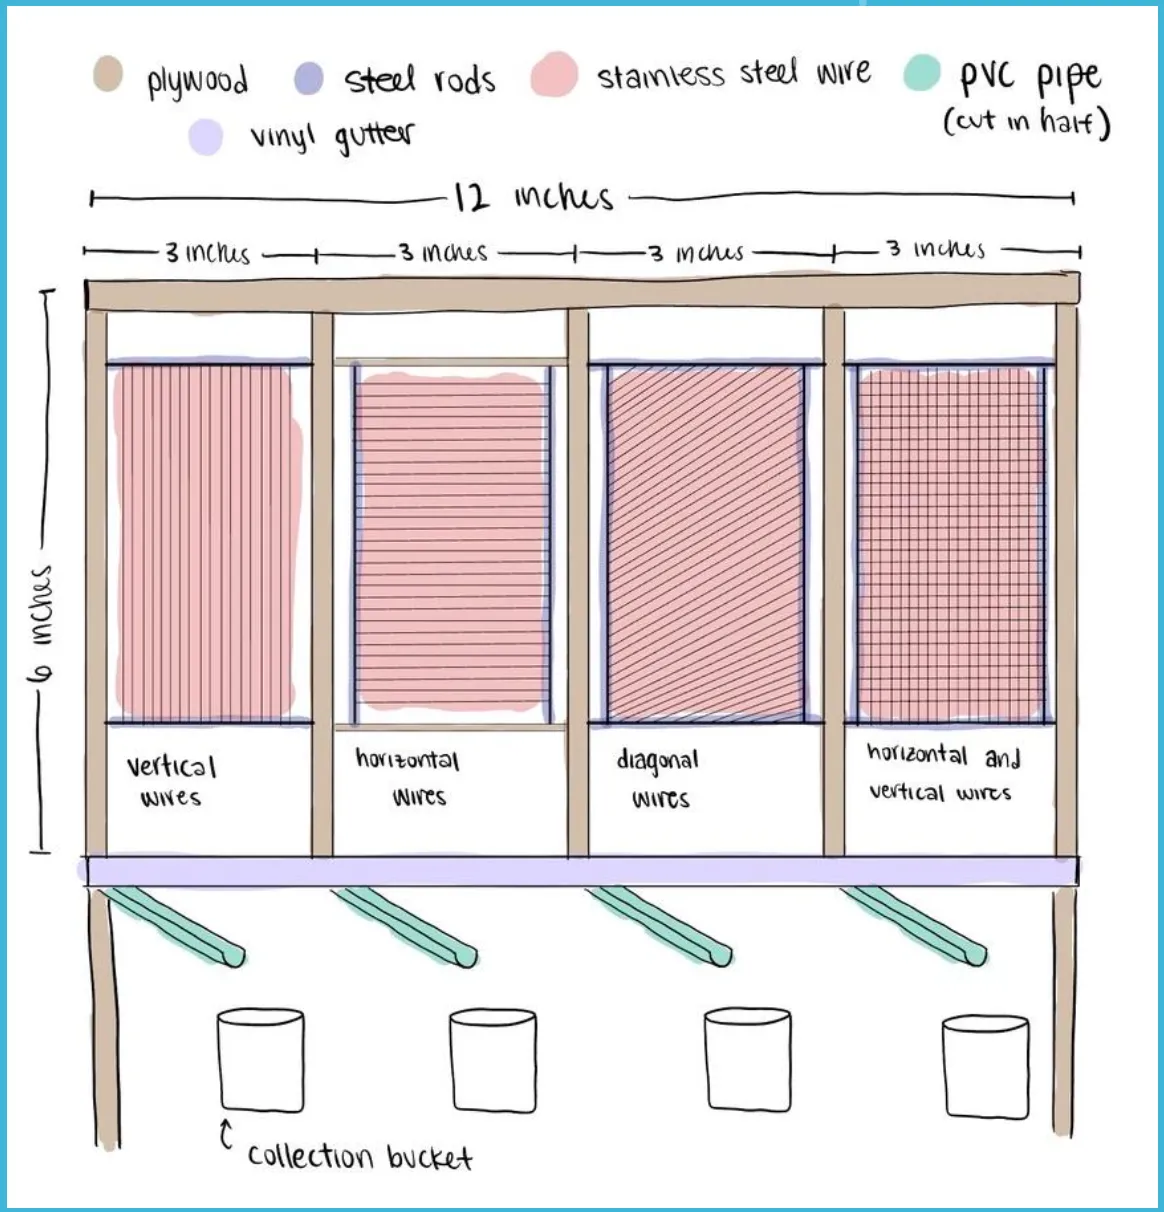 plywood
steel rods
stainless steel wire
PVC pipe
(cut in half)
vinyl gutter
12 inches
3 inches
3 inches
3 inches
3 inches
6 inches
vertical
wires
horizontal
wires
diagonal
wires
horizontal and
vertical wires
collection bucket